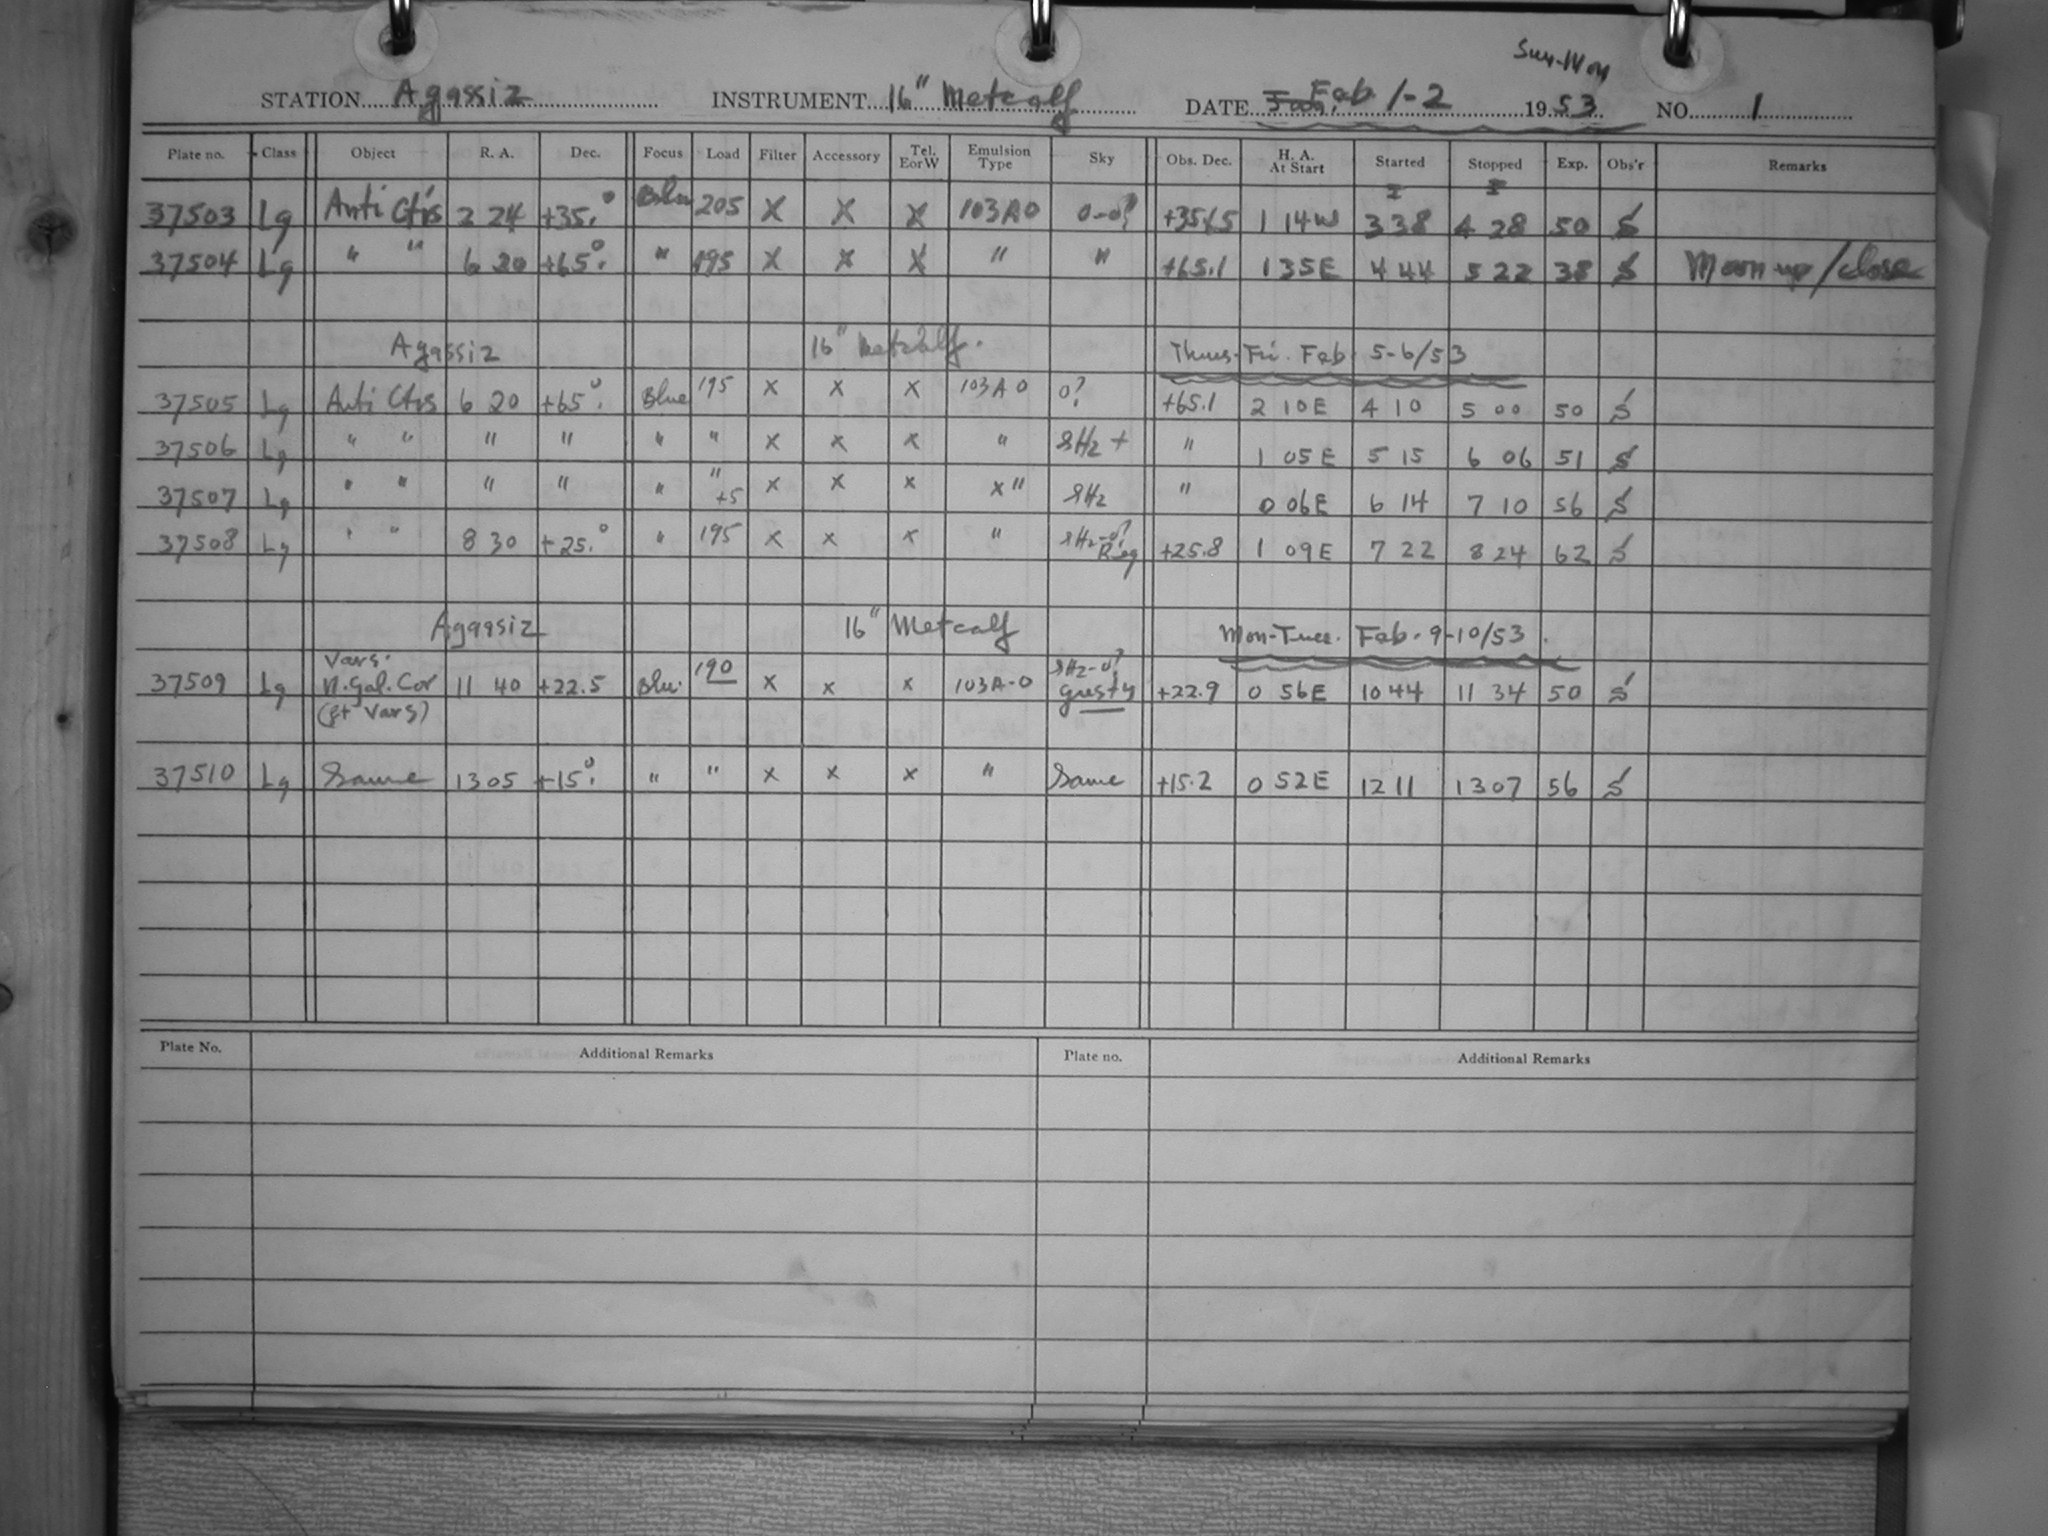 Sun-Mon
STATION Agassiz INSTRUMENT 16" Metcalf DATE Feb 1-2 1953 NO. 1
Plate no. Class Object R. A. Dec. Focus Load Filter Accessory Tel. E or W Emulsion Type Sky Obs. Dec. H. A. At Start Started Stopped Exp. Obs'r Remarks
37503 Lg Anti Ctrs 2 24 +35.° Blue 205 X X X 103AO 0-0? 1 14W 3 38 4 28 50 S
37504 Lg " " 6 20 +65.° " 195 X X X " " +65.1 1 35E 4 44 5 22 38 S Moon up/close
Agassiz 16" Metcalf. Thurs-Fri. Feb. 5-6/53
37505 Lg Anti Ctrs 6 20 +65.° Blue 195 X X X 103A0 0? +65.1 2 10E 4 10 5 00 50 S
37506 Lg " " " " " " X X X " SHz + " 1 05E 5 15 6 06 51 S
37507 Lg " " " " " " +5 X X X X" SHz " 0 06E 6 14 7 10 56 S
37508 Lg " " 8 30 +25.° " 195 X X X " SHz-0? Reg +25.8 1 09E 7 22 8 24 62 S
Agassiz 16" Metcalf Mon-Tues. Feb. 9-10/53.
37509 Lg Vars. N.Gal.Cor (et Vars) 11 40 +22.5 Blu. 190 X X X 103A-O SHz-0? gusty +22.9 0 56E 10 44 11 34 50 S
37510 Lg Same 13 05 +15.° " " X X X " Same +15.2 0 52E 12 11 13 07 56 S
Plate No. Additional Remarks Plate no. Additional Remarks